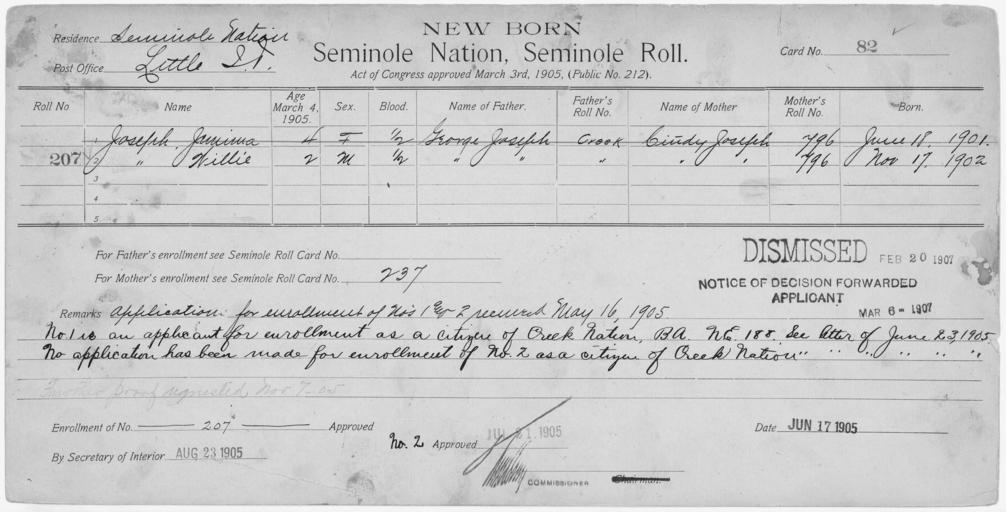 NEW BORN
Seminole Nation, Seminole Roll.
Act of Congress approved March 3rd, 1905, (Public No. 212).
Residence Seminole Nation
Post Office Little I.T.
Card No. 82
Roll No Name Age March 4, 1905. Sex. Blood. Name of Father. Father's Roll No. Name of Mother Mother's Roll No. Born.
1 Joseph, Jamima 4 F ½ George Joseph Creek Cindy Joseph 796 June 18, 1901.
207 2 " Willie 2 M ½ " " " " " 796 Nov 17, 1902
3
4
5
For Father's enrollment see Seminole Roll Card No.
For Mother's enrollment see Seminole Roll Card No. 237
DISMISSED FEB 20 1907
NOTICE OF DECISION FORWARDED
APPLICANT
MAR 6- 1907
Remarks Application for enrollment of Nos 1 & 2 received May 16, 1905
No 1 is an applicant for enrollment as a citizen of Creek Nation, BA. NC. 188. See letter of June 23, 1905
No application has been made for enrollment of No. 2 as a citizen of Creek Nation " " " " " "
Further proof requested Nov 7-05
Enrollment of No. 207 Approved
By Secretary of Interior AUG 23 1905
No. 2 Approved JUL 21 1905
COMMISSIONER Chairman.
Date JUN 17 1905